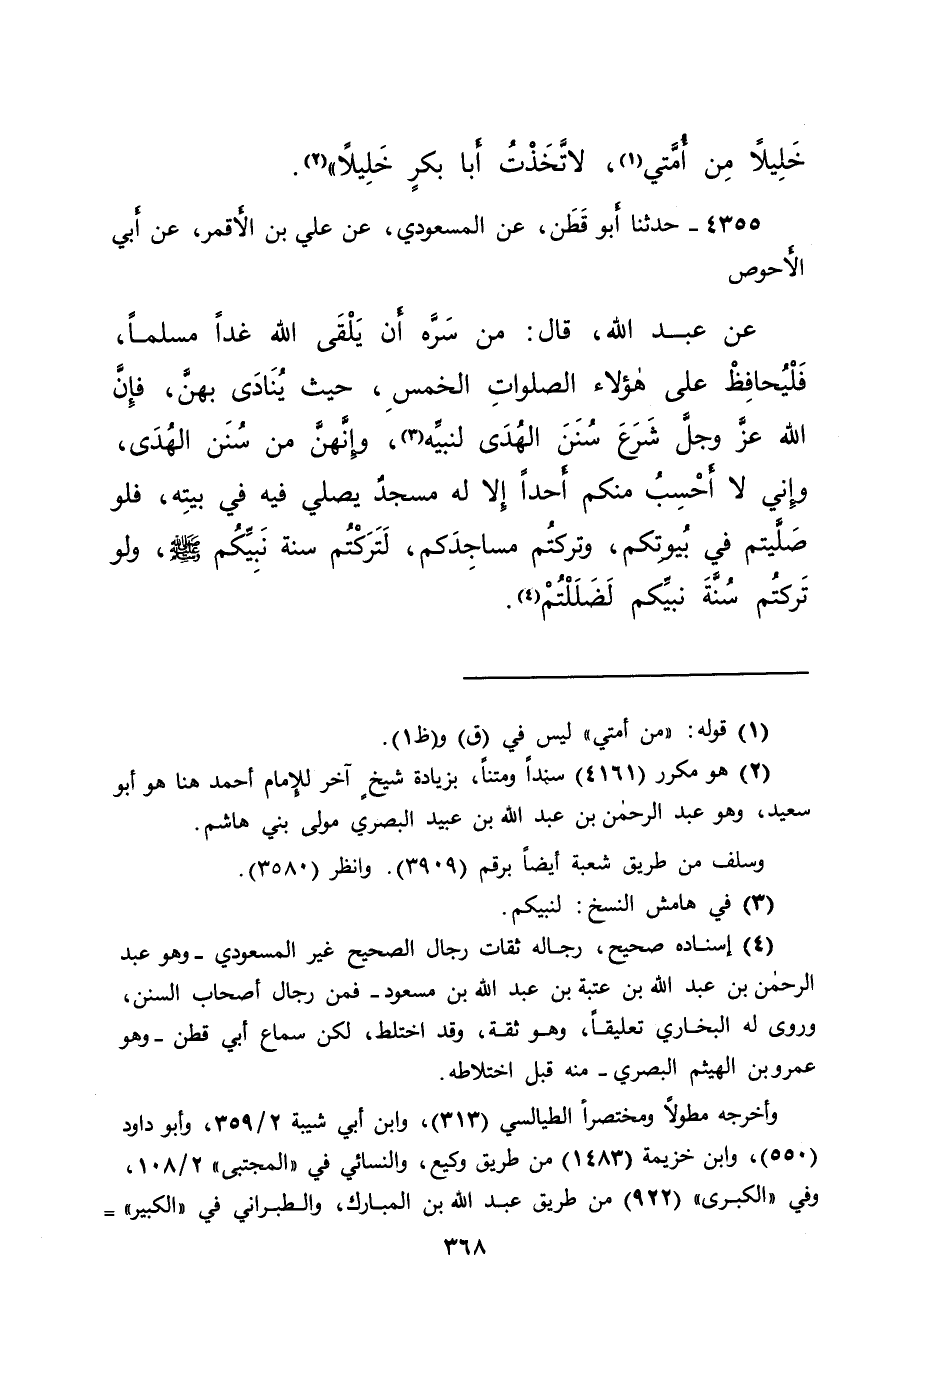 خَلِيلًا مِن أُمَّتي(١)، لاتَّخَذْتُ أَبا بكرٍ خَلِيلًا»(٢).
٤٣٥٥ ـ حدثنا أَبو قَطَن، عن المسعودي، عن علي بن الأَقمر، عن أَبي
الأَحوص
عن عبـد الله، قال: من سَرَّه أَن يَلْقَى الله غداً مسلمـاً،
فَلْيُحافِظْ على هٰؤلاء الصلواتِ الخمسِ، حيث يُنَادَى بهنَّ، فإِنَّ
الله عزَّ وجلَّ شَرَعَ سُنَنَ الهُدَى لنبيِّه(٣)، وإِنَّهنَّ من سُنَن الهُدَى،
وإِني لا أَحْسِبُ منكم أَحداً إِلا له مسجدٌ يصلي فيه في بيتِه، فلو
صَلَّيتم في بُيوتِكم، وتركتُم مساجِدَكم، لَتَرَكْتُم سنة نَبِيِّكُم ﷺ، ولو
تَركتُم سُنَّةَ نبيِّكم لَضَلَلْتُمْ(٤).
(١) قوله: «من أمتي» ليس في (ق) و(ظ١).
(٢) هو مكرر (٤١٦١) سنداً ومتناً، بزيادة شيخٍ آخر للإِمام أحمد هنا هو أبو
سعيد، وهو عبد الرحمٰن بن عبد الله بن عبيد البصري مولى بني هاشم.
وسلف من طريق شعبة أيضاً برقم (٣٩٠٩). وانظر (٣٥٨٠).
(٣) في هامش النسخ: لنبيكم.
(٤) إسنـاده صحيح، رجـاله ثقات رجال الصحيح غير المسعودي ـ وهو عبد
الرحمٰن بن عبد الله بن عتبة بن عبد الله بن مسعود ـ فمن رجال أصحاب السنن،
وروى له البخـاري تعليقـاً، وهـو ثقـة، وقد اختلط، لكن سماع أبي قطن ـ وهو
عمرو بن الهيثم البصري ـ منه قبل اختلاطه.
وأخرجه مطولاً ومختصراً الطيالسي (٣١٣)، وابن أبي شيبة ٣٥٩/٢، وأبو داود
(٥٥٠)، وابن خزيمة (١٤٨٣) من طريق وكيع، والنسائي في «المجتبى» ١٠٨/٢،
وفي «الكبـرى» (٩٢٢) من طريق عبـد الله بن المبـارك، والـطبـراني في «الكبير» =
٣٦٨